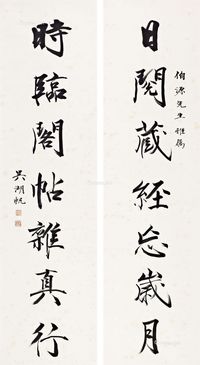 伯源先生雅屬
日閱藏經忘歲月
時臨閣帖雜真行
吳湖帆